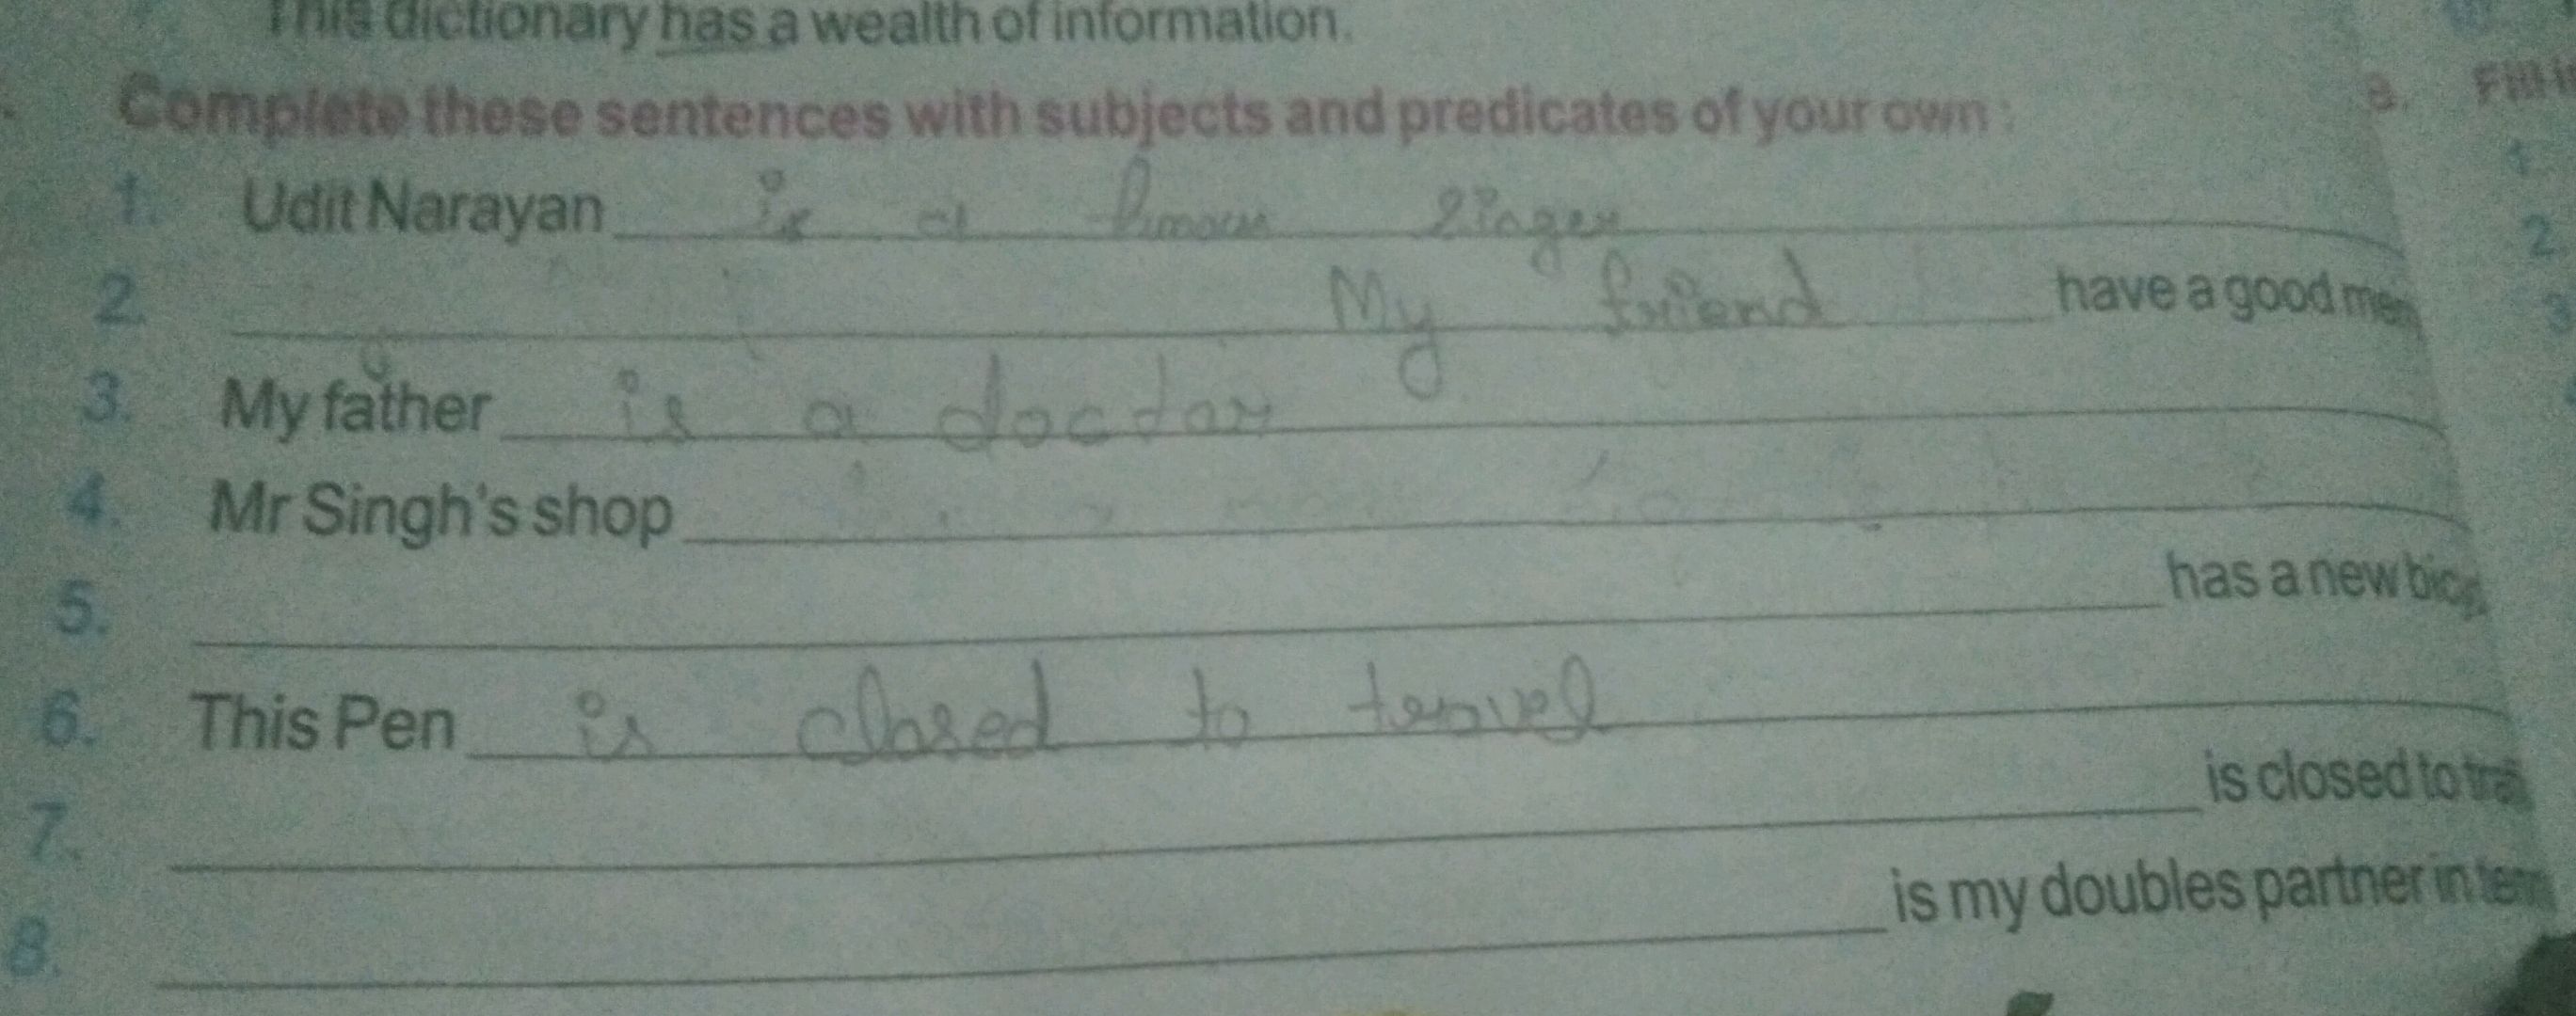 This dictionary has a wealth of information.
Complete these sentences with subjects and predicates of your own:
1. Udit Narayan is a singer
2. My friend have a good
3. My father is a doctor
4. Mr Singh's shop
5. has a new
6. This Pen is closed to
7. is closed to
8. is my doubles partner in
3. Fill
1.
2
3